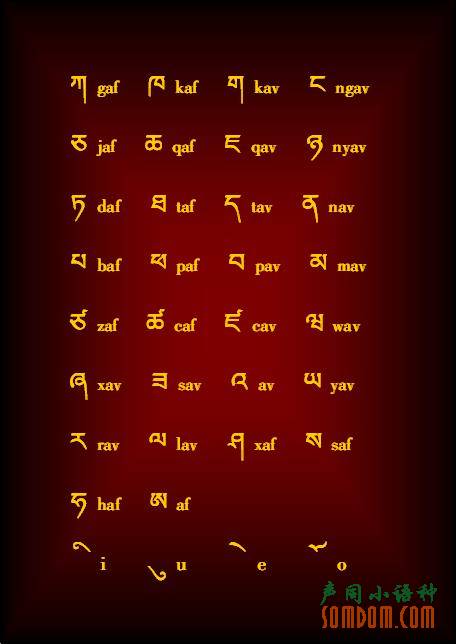 ཀ gaf ཁ kaf ག kav ང ngav
ཅ jaf ཆ qaf ཇ qav ཉ nyav
ཏ daf ཐ taf ད tav ན nav
པ baf ཕ paf བ pav མ mav
ཙ zaf ཚ caf ཛ cav ཝ wav
ཞ xav ཟ sav འ av ཡ yav
ར rav ལ lav ཤ xaf ས saf
ཧ haf ཨ af
ི i ུ u ེ e ོ o
声同小语种
SOMDOM.COM